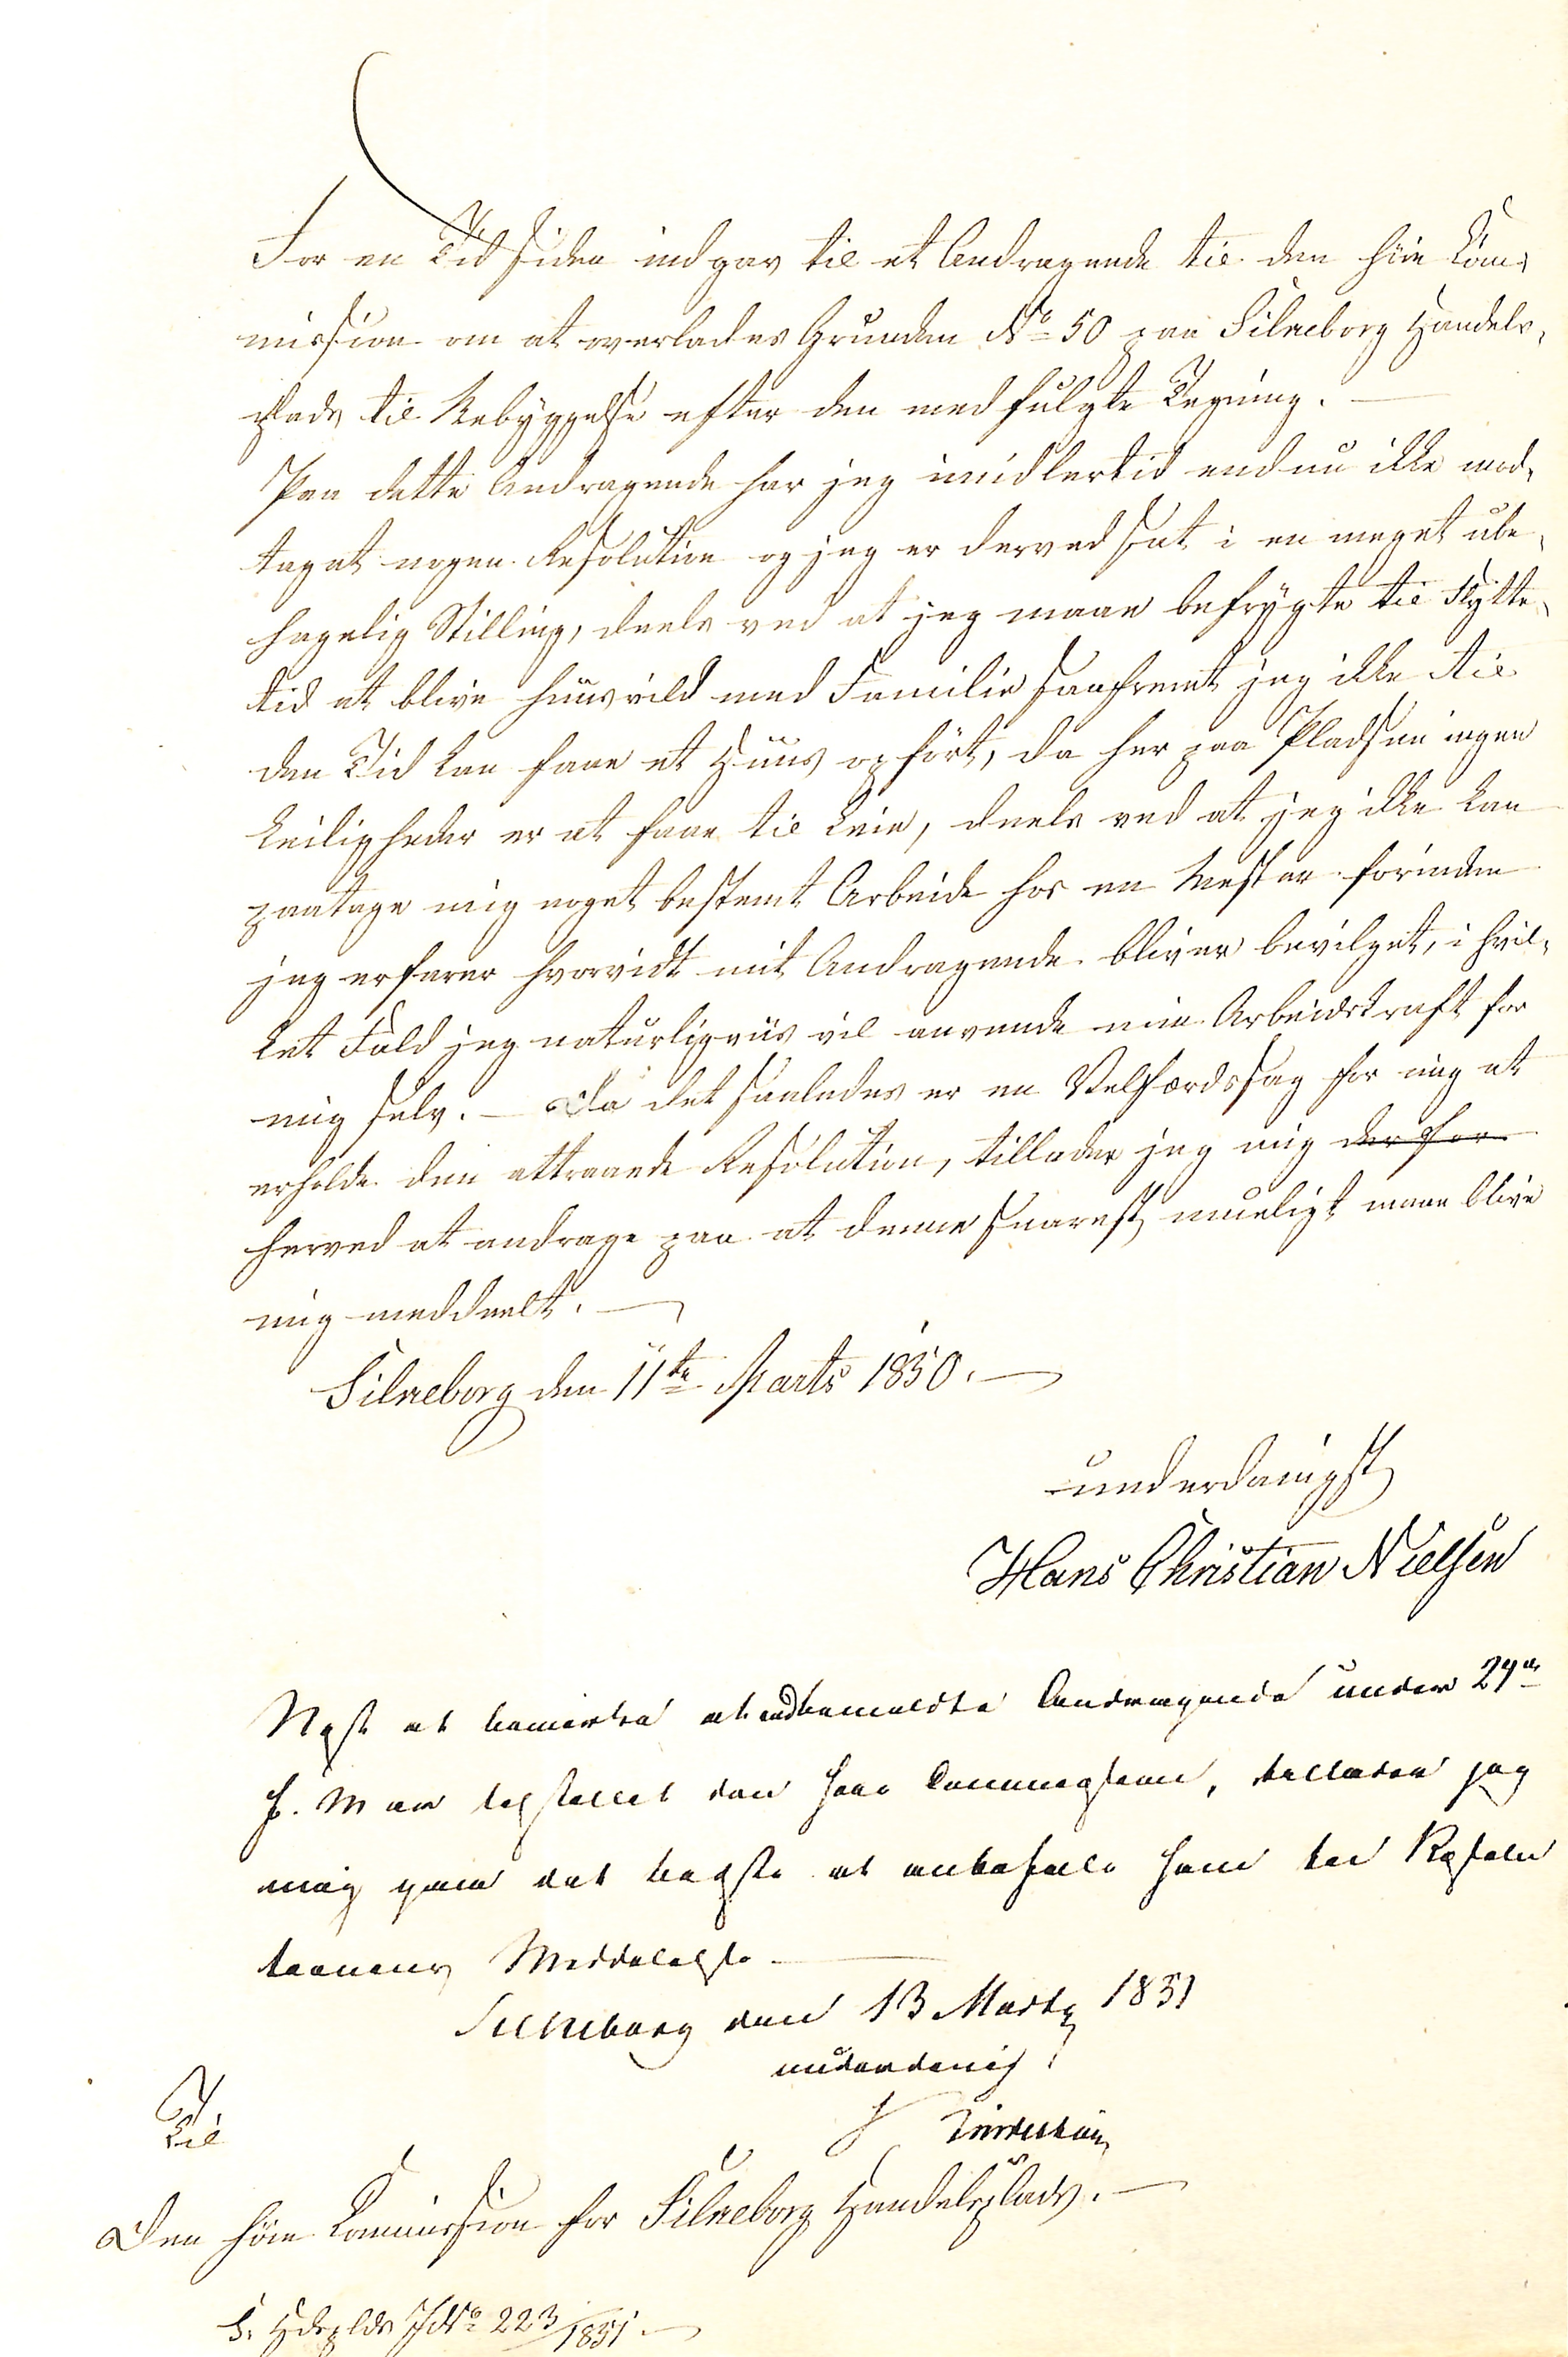 For en Tid siden indgav til et Andragende til den høie Com-
mission om at overlades Grunden No 50 paa Silkeborg Handels-
plads til Bebyggelse efter den medfulgte Tegning. —
Paa dette Andragende har jeg imidlertid endnu ikke mod-
taget nogen Resolution og jeg er derved sat i en meget ube-
hagelig Stilling, deels ved at jeg maae befrygte til Flytte-
tid at blive huusvild med Familie saafremt jeg ikke til
den Tid kan faae et Huus opført, da her paa Pladsen ingen
Leiligheder er at faae til Leie, deels ved at jeg ikke kan
paatage mig noget bestemt Arbeide hos en Mester forinden
jeg erfarer hvorvidt mit Andragende bliver bevilget, i hvil-
ket Fald jeg naturligviis vil anvende min Arbeidskraft for
mig selv. — Da det saaledes er en Velfærdssag for mig at
erholde den attraaede Resolution, tillader jeg mig derfor
herved at andrage paa at denne snarest mueligt maae blive
mig meddeelt. —
Silkeborg den 11te Marts 1850. —
underdanigst
Hans Christian Nielsen
Næst at bemærke at ovenmeldte Andragende under 27de
f. M er tilstillet den høie Commission, tillader jeg
mig paa det bedste at anbefale ham til Resolu
tionens Meddelelse —
Silkeborg den 13 Marts 1851
underdanigst
Til
Den høie Commission for Silkeborg Handelsplads. —
S. Hdsplds J No 223/1851. —